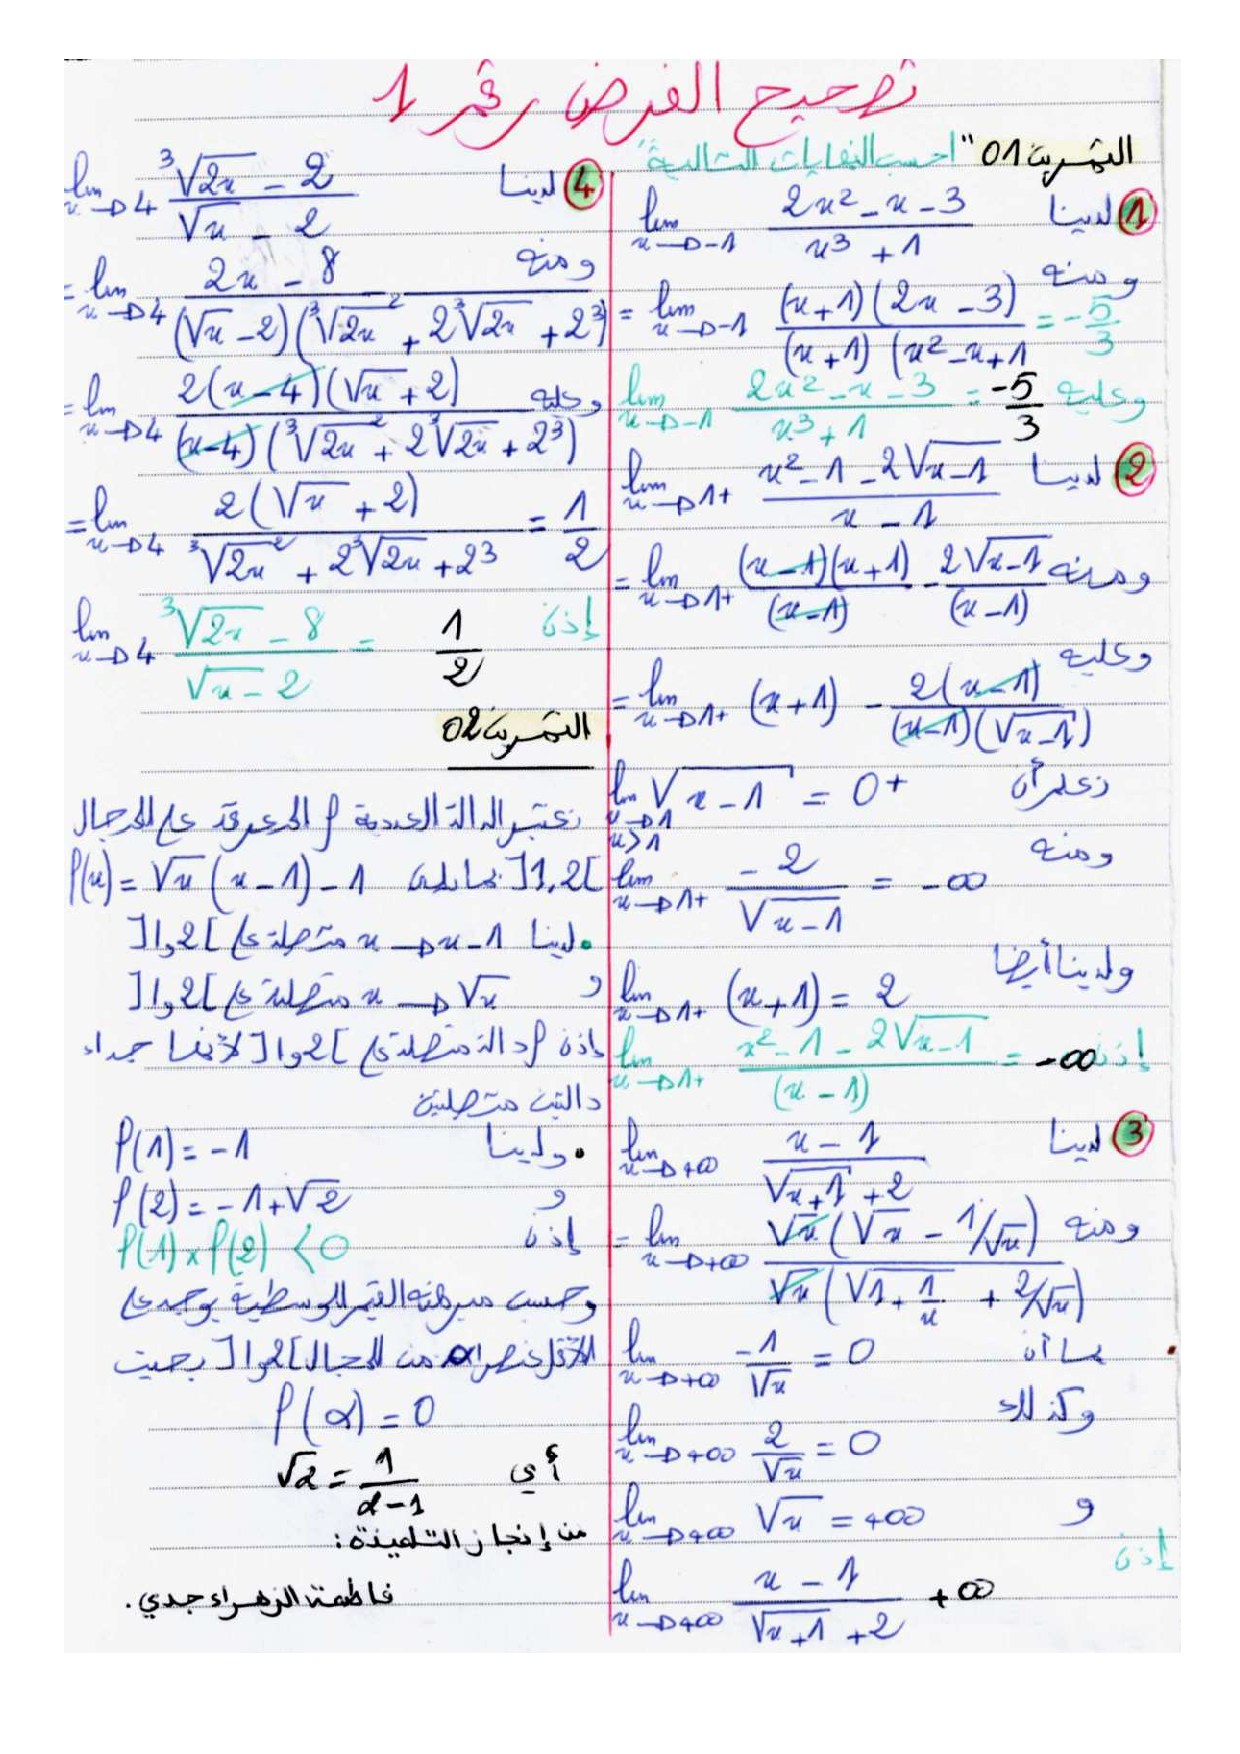 تصحيح الفرض رقم 1
التمرين 01 "احسب النهايات التالية"
① لدينا lim x→-1 (2x² - x - 3)/(x³ + 1)
ومنه
= lim x→-1 ((x+1)(2x-3))/((x+1)(x²-x+1) = -5/3
وعليه lim x→-1 (2x² - x - 3)/(x³ + 1) = -5/3
② لدينا lim x→1+ (x² - 1 - 2√(x-1))/(x - 1)
ومنه = lim x→1+ ((x-1)(x+1))/(x-1) - (2√(x-1))/(x-1)
وعليه
= lim x→1+ (x+1) - (2(x-1))/((x-1)(√(x-1)))
نعلم أن lim x→1 x>1 √(x-1) = 0+
ومنه
lim x→1+ -2/√(x-1) = -∞
ولدينا أيضا
lim x→1+ (x+1) = 2
إذن lim x→1+ (x² - 1 - 2√(x-1))/(x-1) = -∞
③ لدينا lim x→+∞ (x-1)/(√(x+1) + 2)
ومنه = lim x→+∞ (√x(√x - 1/√x))/(√x(√(1+1/x) + 2/√x))
بما أن lim x→+∞ -1/√x = 0
وكذلك
lim x→+∞ 2/√x = 0
و lim x→+∞ √x = +∞
إذن
lim x→+∞ (x-1)/(√(x+1) + 2) +∞
④ لدينا lim x→4 (³√(2x) - 2)/(√x - 2)
ومنه
= lim x→4 (2x - 8)/((√x - 2)(³√(2x)² + 2³√(2x) + 2³))
وعليه = lim x→4 (2(x-4)(√x + 2))/((x-4)(³√(2x)² + 2³√(2x) + 2³))
= lim x→4 (2(√x + 2))/(³√(2x)² + 2³√(2x) + 2³) = 1/2
إذن lim x→4 (³√(2x) - 8)/(√x - 2) = 1/2
التمرين 02
نعتبر الدالة العددية f المعرفة على المجال
]1,2[ بما يلي f(x) = √x(x-1) - 1
• لدينا x→x-1 متصلة على ]1و2[
و x→√x متصلة على ]1و2[
إذن f دالة متصلة على ]1و2[ لأنها جداء
دالتين متصلتين
• ولدينا f(1) = -1
و f(2) = -1+√2
إذن f(1) × f(2) < 0
وحسب مبرهنة القيم الوسطية يوجد على
الأقل عنصر α من المجال ]1و2[ بحيث
f(α) = 0
أي √α = 1/(α-1)
من إنجاز التلميذة:
فاطمة الزهراء جدي.